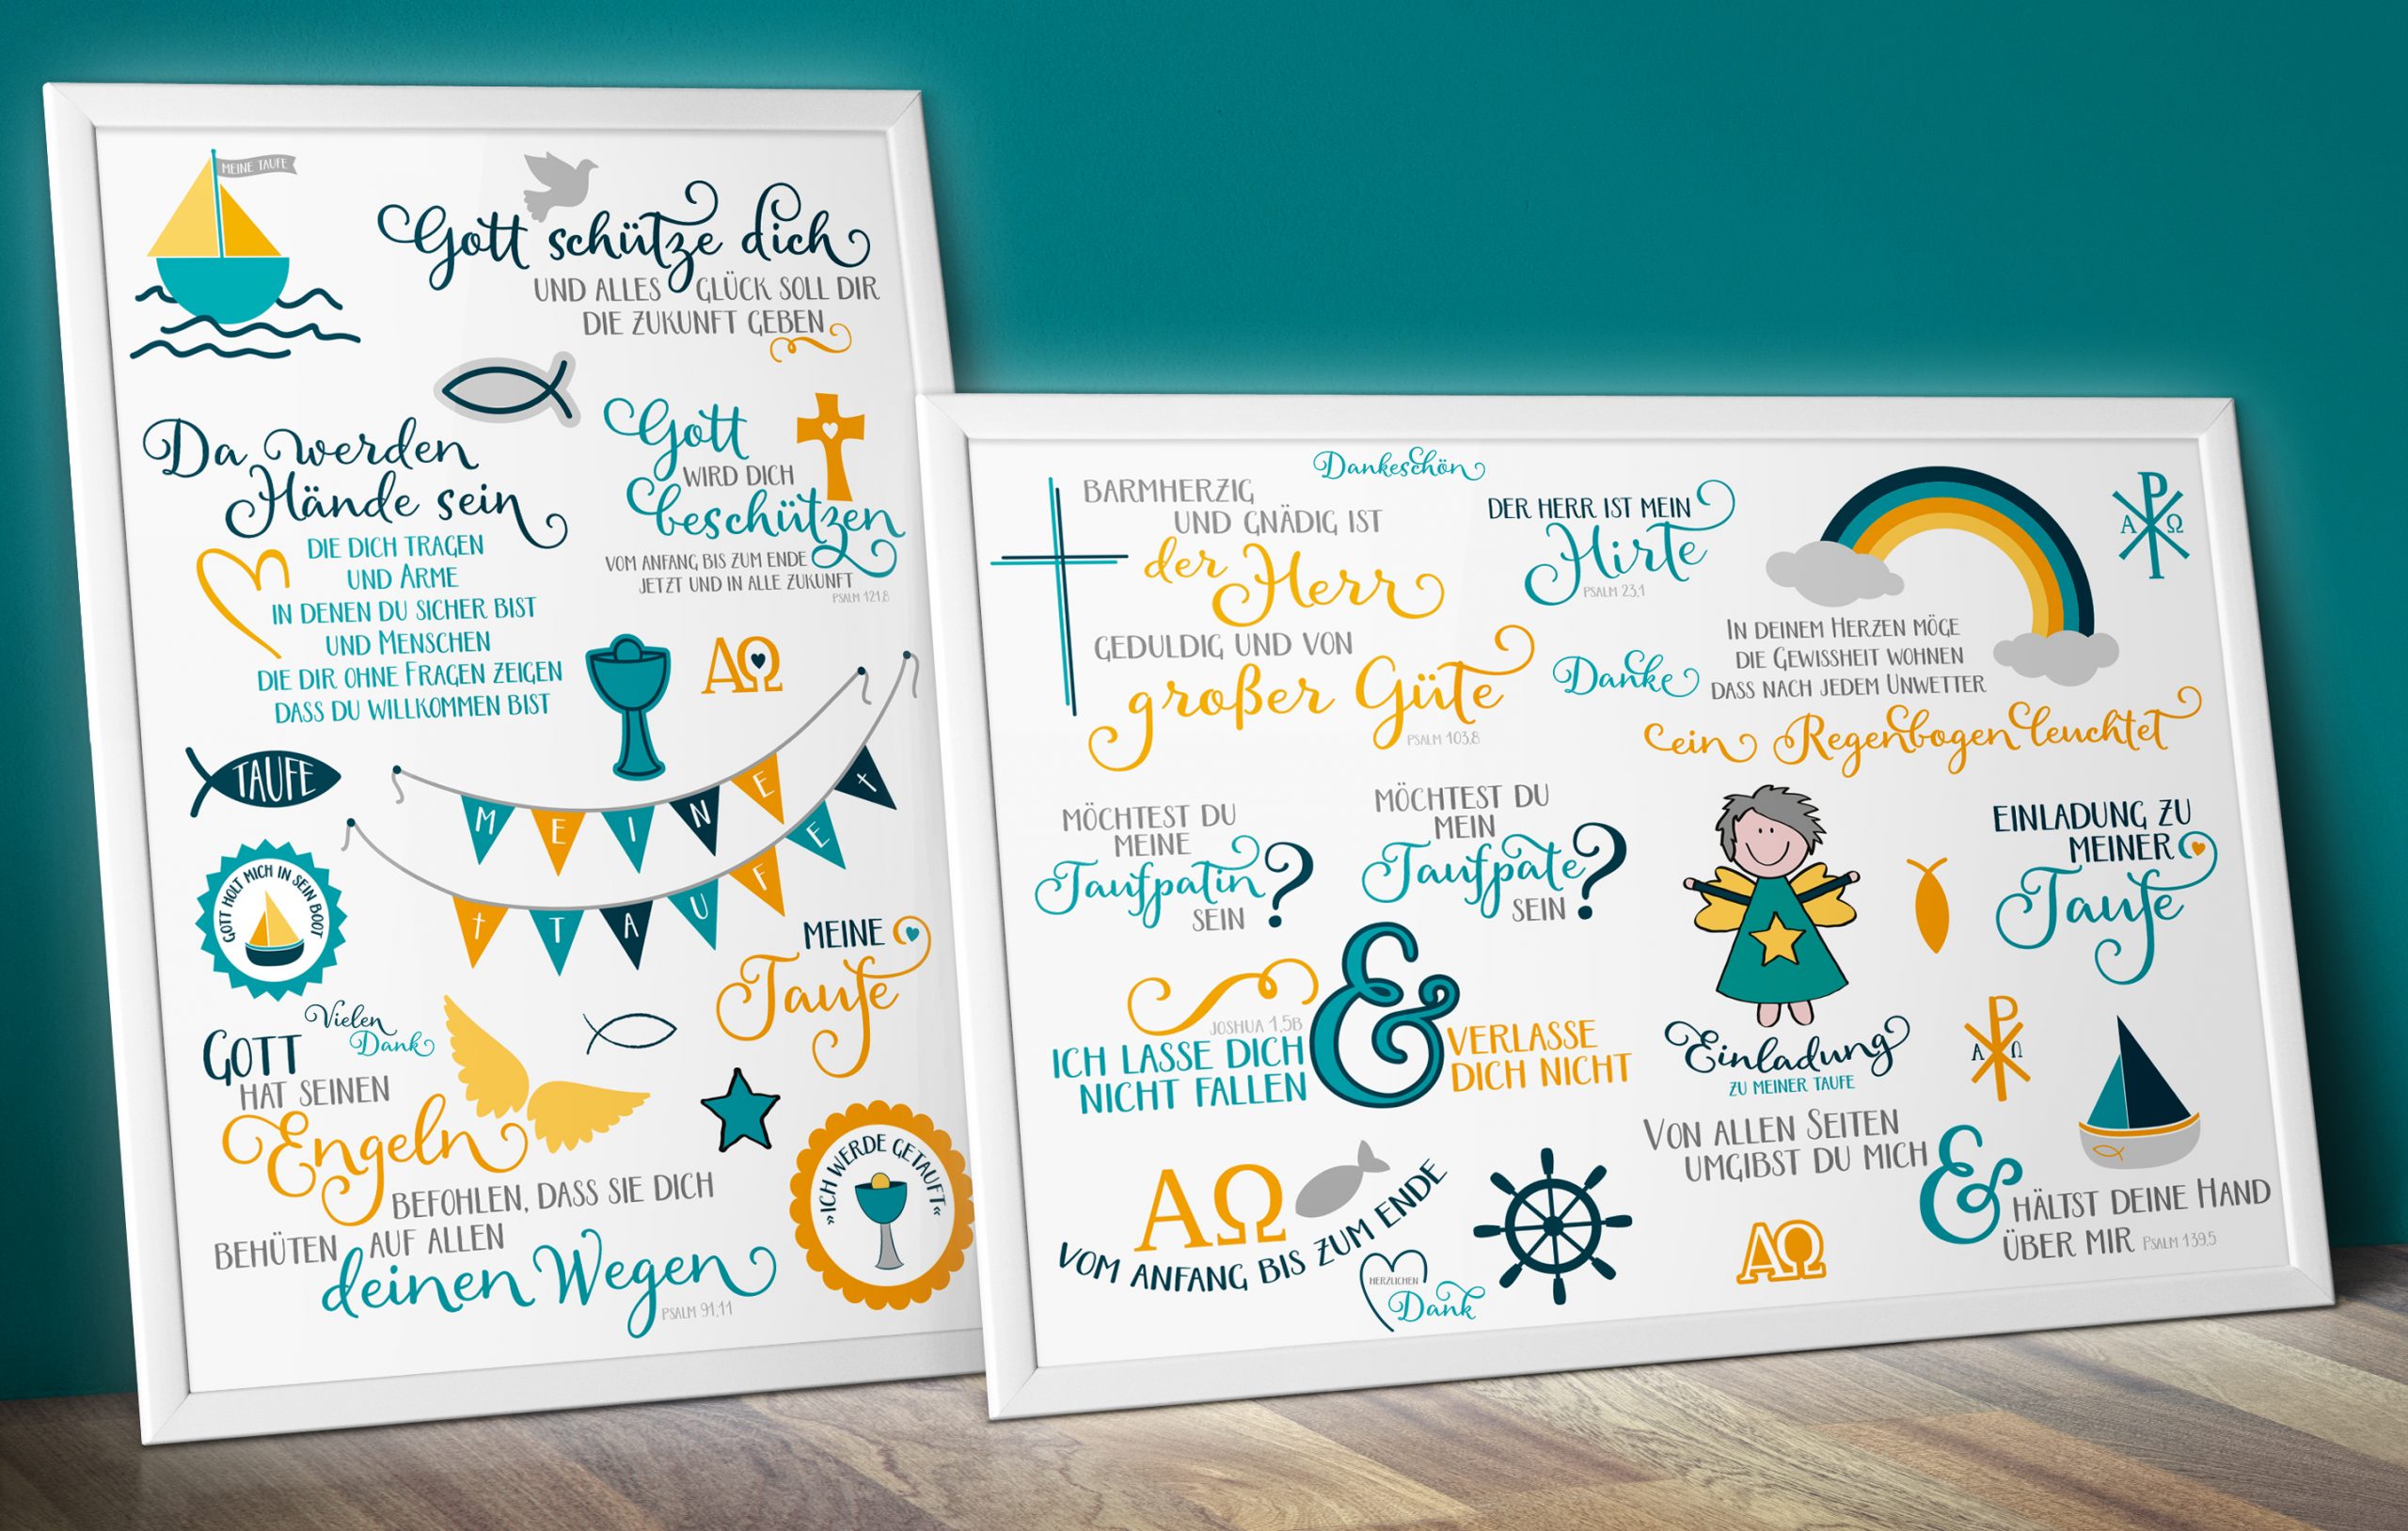 MEINE TAUFE
Gott schütze dich
UND ALLES GLÜCK SOLL DIR
DIE ZUKUNFT GEBEN
Da werden
Hände sein
DIE DICH TRAGEN
UND ARME
IN DENEN DU SICHER BIST
UND MENSCHEN
DIE DIR OHNE FRAGEN ZEIGEN
DASS DU WILLKOMMEN BIST
Gott
WIRD DICH
beschützen
VOM ANFANG BIS ZUM ENDE
JETZT UND IN ALLE ZUKUNFT
PSALM 121,8
ΑΩ
TAUFE
MEINE
TAUFE
GOTT HOLT MICH IN SEIN BOOT
MEINE
Taufe
Vielen
Dank
GOTT
HAT SEINEN
Engeln
BEFOHLEN, DASS SIE DICH
BEHÜTEN AUF ALLEN
deinen Wegen
PSALM 91,11
»ICH WERDE GETAUFT«
BARMHERZIG
UND GNÄDIG IST
der Herr
GEDULDIG UND VON
großer Güte
PSALM 103,8
Dankeschön
DER HERR IST MEIN
Hirte
PSALM 23,1
Α Ω
Danke
IN DEINEM HERZEN MÖGE
DIE GEWISSHEIT WOHNEN
DASS NACH JEDEM UNWETTER
ein Regenbogen leuchtet
MÖCHTEST DU
MEINE
Taufpatin
SEIN ?
MÖCHTEST DU
MEIN
Taufpate
SEIN ?
EINLADUNG ZU
MEINER
Taufe
JOSHUA 1,5B
ICH LASSE DICH
NICHT FALLEN
&
VERLASSE
DICH NICHT
Einladung
ZU MEINER TAUFE
Α Ω
VON ALLEN SEITEN
UMGIBST DU MICH
&
HÄLTST DEINE HAND
ÜBER MIR PSALM 139,5
ΑΩ
VOM ANFANG BIS ZUM ENDE
HERZLICHEN
Dank
ΑΩ